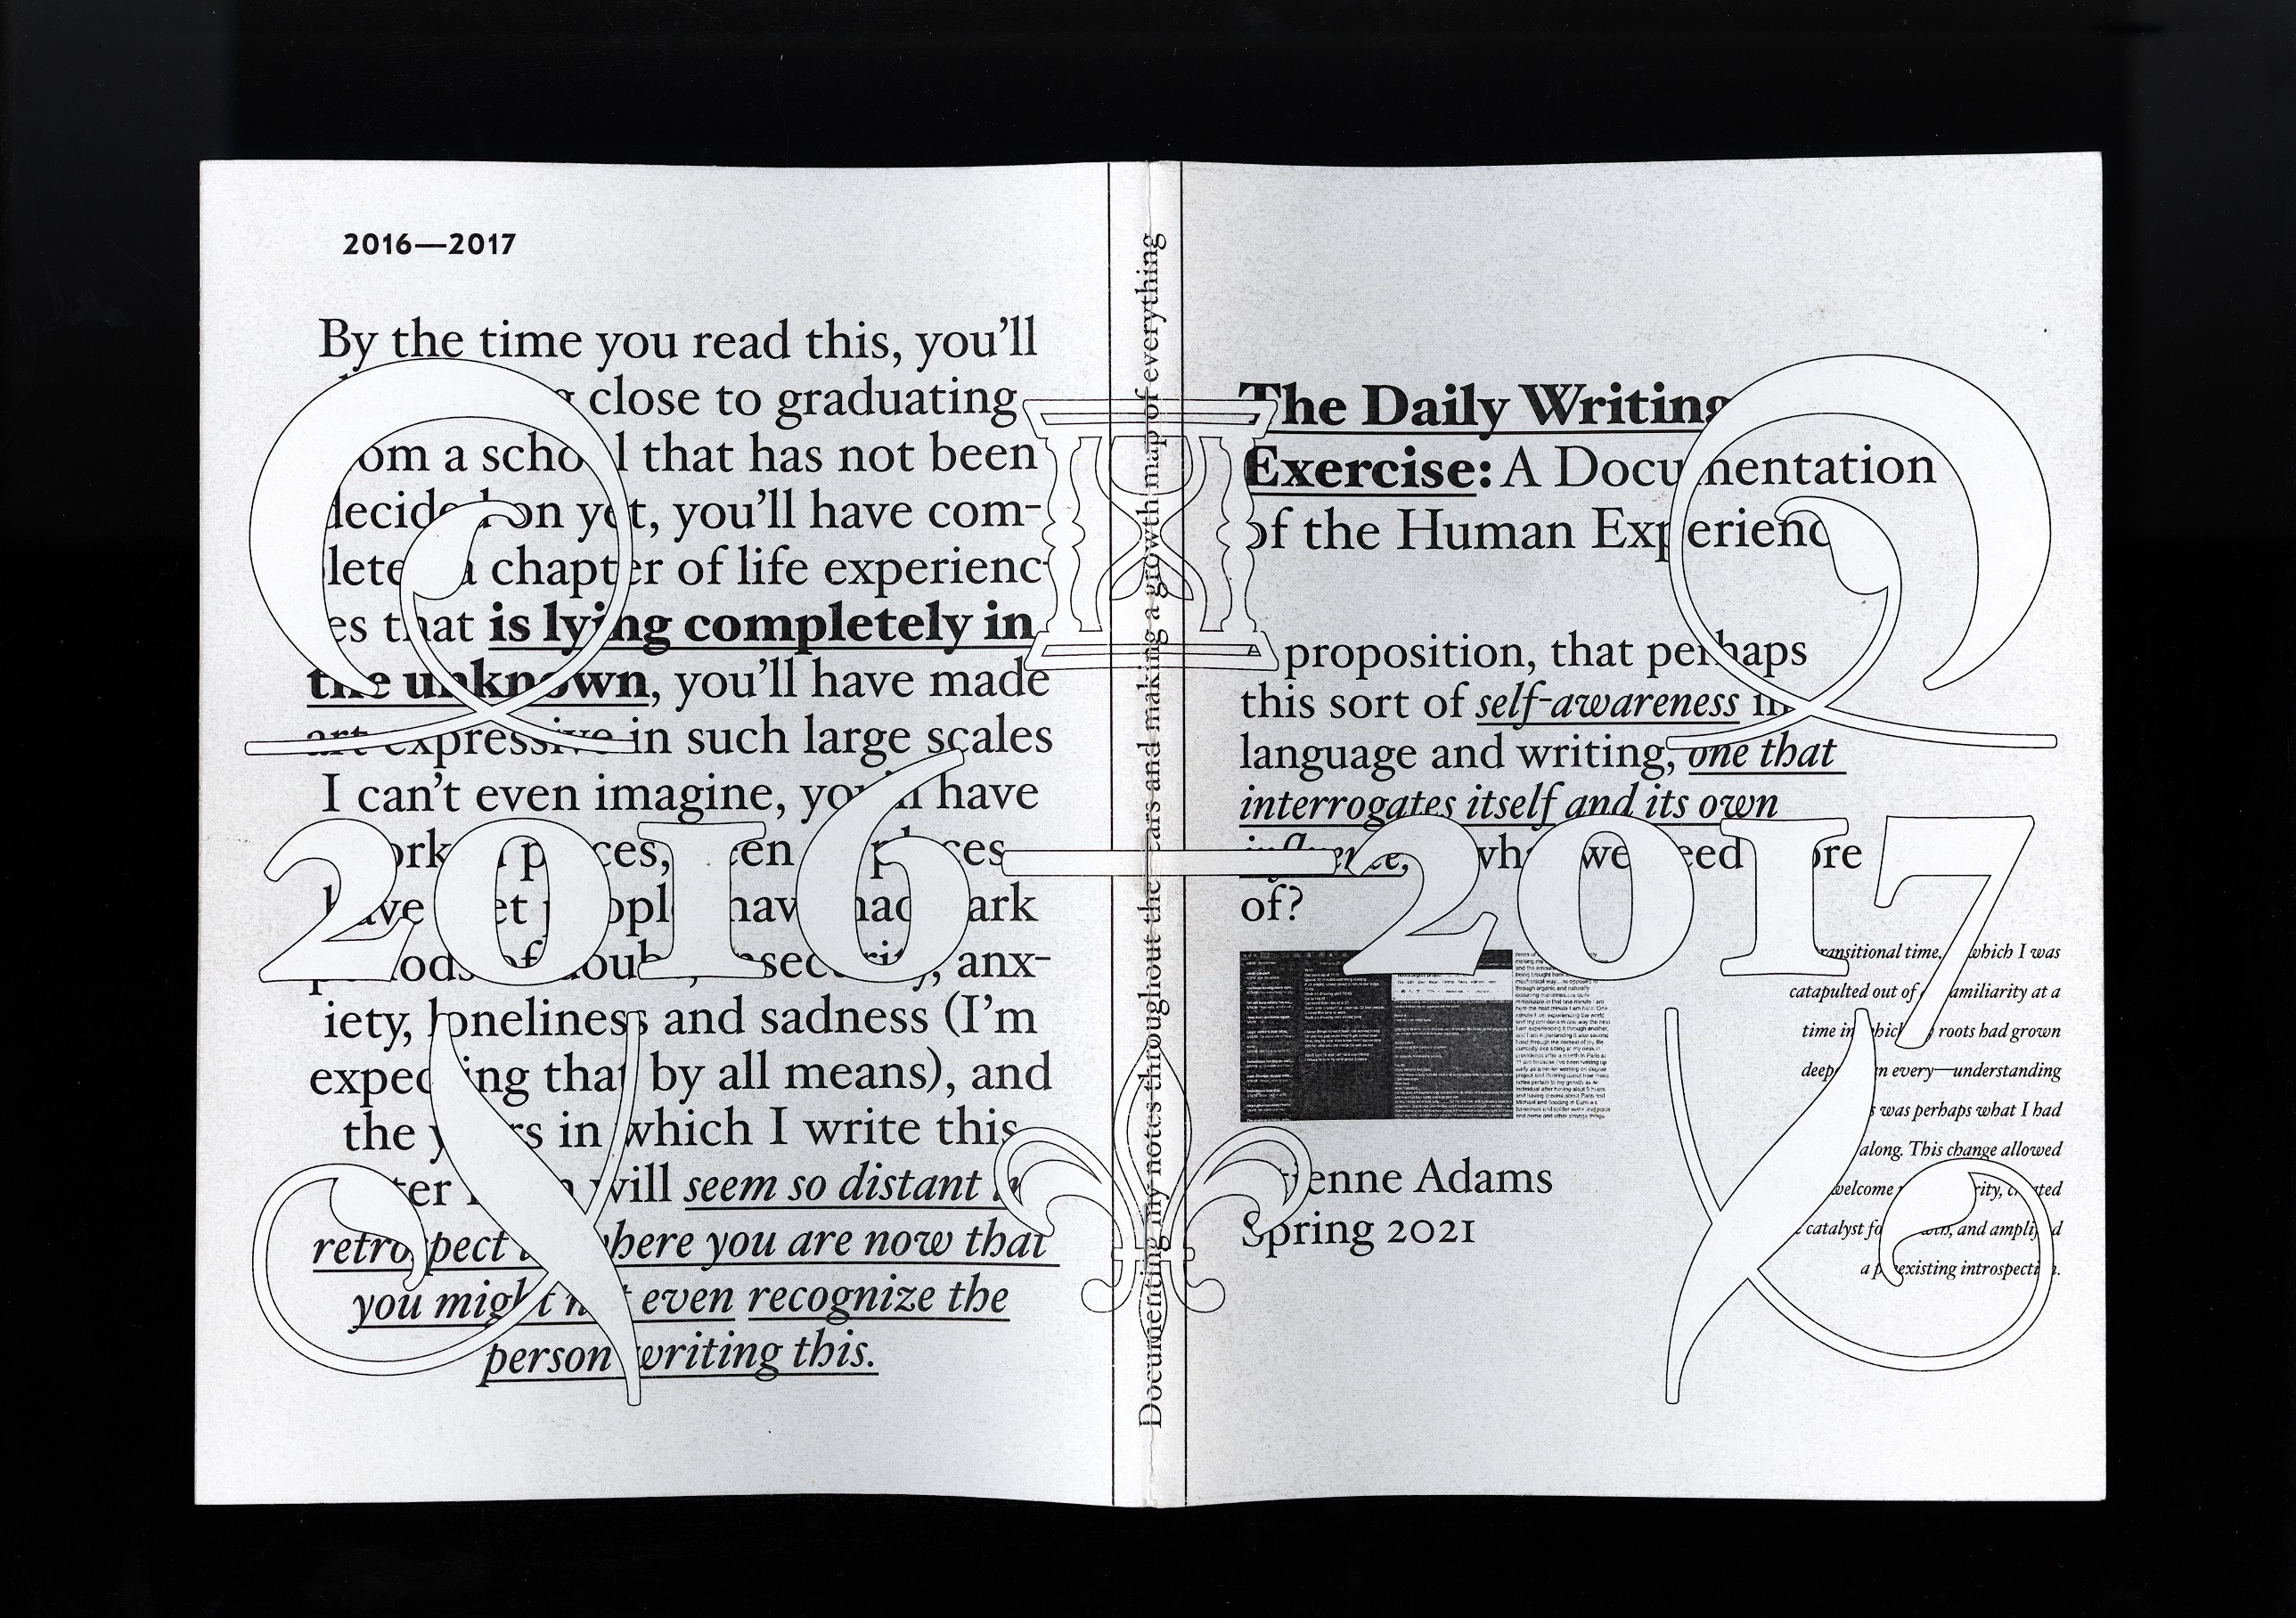 2016—2017
By the time you read this, you'll
close to graduating
from a school that has not been
decided on yet, you'll have com-
pleted a chapter of life experienc-
es that is lying completely in
the unknown, you'll have made
art expressive in such large scales
I can't even imagine, you'll have
have met people, have had dark
periods of doubt, insecurity, anx-
iety, loneliness and sadness (I'm
expecting that by all means), and
the years in which I write this
will seem so distant in
retrospect to where you are now that
you might not even recognize the
person writing this.
Documenting my notes throughout the years and making a growth map of everything
The Daily Writing
Exercise: A Documentation
of the Human Experience
proposition, that perhaps
this sort of self-awareness in
language and writing, one that
interrogates itself and its own
influence, what we need more
of?
Adams
Spring 2021
transitional time, which I was
catapulted out of familiarity at a
time in which roots had grown
every—understanding
was perhaps what I had
along. This change allowed
welcome created
catalyst and amplified
a preexisting introspection.
2016—2017